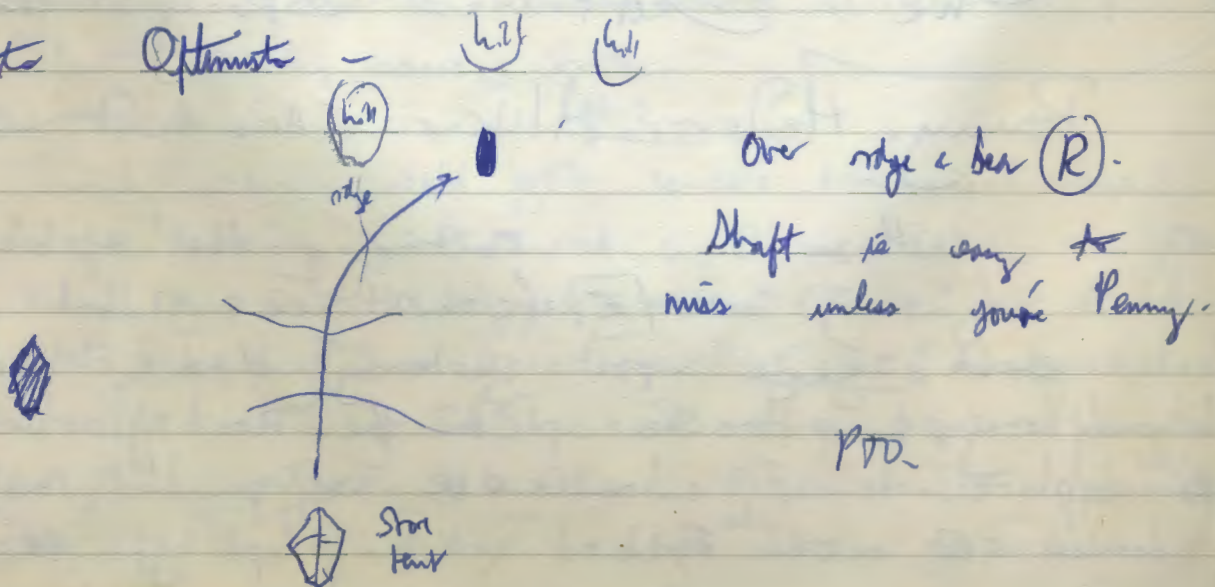 to Optimisto - hill hill
hill
ridge
Over ridge & bear R.
Shaft is easy to
miss unless you're Penny.
PTO.
Store
tent